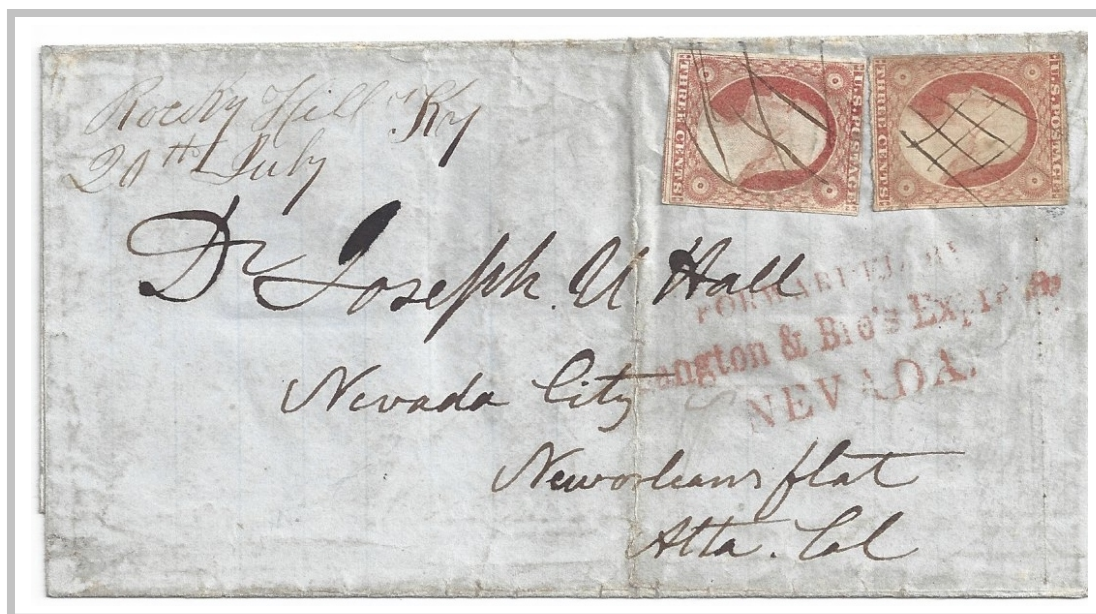 Rocky Hill Ky
20th July
U.S. POSTAGE
THREE CENTS
U.S. POSTAGE
THREE CENTS
Dr Joseph U Hall
FORWARDED BY
Langton & Bro's Express
NEVADA.
Nevada City
Neworleans flat
Alta. Cal